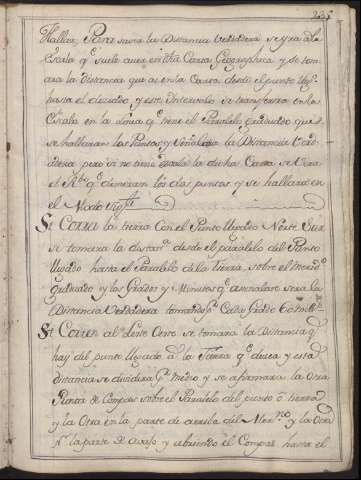 Hallar, Para saver la Distancia verdadera se yra a la
Escala q.e suele aver en dha Carta Geographica y se tom
ara la Distancia que ai en la Carta desde el punto
hasta el deseado y este Intervalo se transferira en la
Escala en la linea q.e tiene el Paralelo graduado que
se hallaran las Puntas y Señalara la Distancia Verd
adera pero si no tiene escala la dicha Carta se vera
el q.e dieren los dos puntos y se hallara en
el Modo sig.te
Si Corre la tierra con el Punto llegado Norte Sur
se tomara la distan.a desde el paralelo del Punto
llegado hasta el Paralelo de la Tierra, sobre el merid.o
graduado y los Grados y Minutos q.e señalare sera la
Distancia Verdadera tomando p.r Cada Grado 60 mill.s
Si Corren al leste Oeste se tomara la Distancia q.e
hay del punto llegado a la Tierra q.e desea y esta
distancia se dividira p.r medio y se afirmara la Una
Punta de Compas sobre el Paralelo del puesto o tierra
y la Otra en la parte de arriva del Mer.no y la Otra
la parte de avajo y abriendo el Compas hasta el